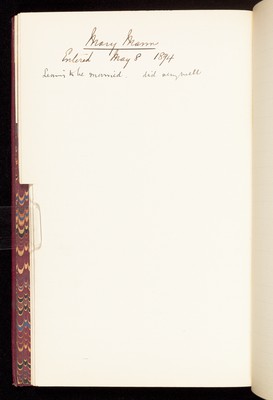 Mary Mann
Entered May 8 1894
Leaving to be married. did very well